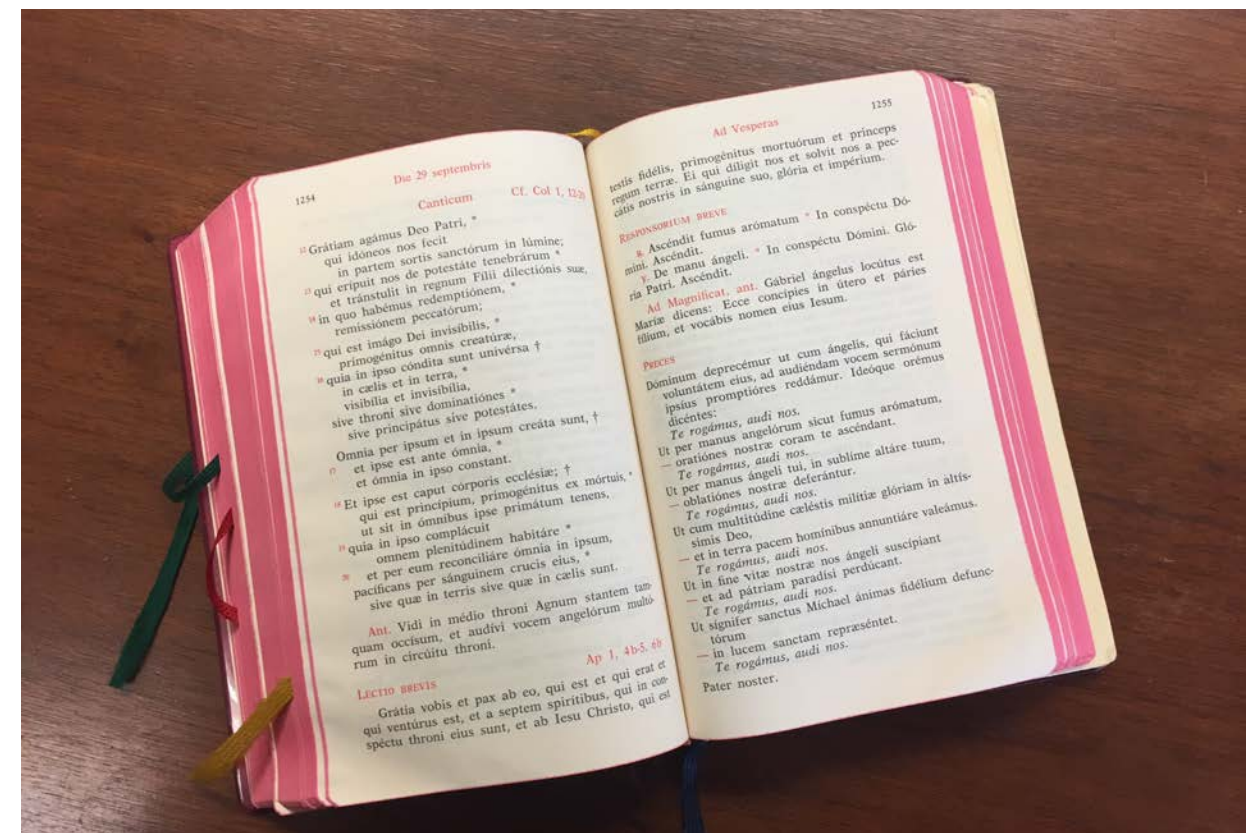 1254
Die 29 septembris
Canticum Cf. Col 1, 12-20
12 Grátiam agámus Deo Patri, *
qui idóneos nos fecit
in partem sortis sanctórum in lúmine;
13 qui erípuit nos de potestáte tenebrárum *
et tránstulit in regnum Fílii dilectiónis suæ,
14 in quo habémus redemptiónem, *
remissiónem peccatórum;
15 qui est imágo Dei invisíbilis, *
primogénitus omnis creatúræ,
16 quia in ipso cóndita sunt univérsa †
in cælis et in terra, *
visibília et invisibília,
sive throni sive dominatiónes *
sive principátus sive potestátes.
Omnia per ipsum et in ipsum creáta sunt, †
17 et ipse est ante ómnia, *
et ómnia in ipso constant.
18 Et ipse est caput córporis ecclésiæ; †
qui est princípium, primogénitus ex mórtuis, *
ut sit in ómnibus ipse primátum tenens,
19 quia in ipso complácuit
omnem plenitúdinem habitáre *
20 et per eum reconciliáre ómnia in ipsum,
pacíficans per sánguinem crucis eius, *
sive quæ in terris sive quæ in cælis sunt.
Ant. Vidi in médio throni Agnum stantem tam
quam occísum, et audívi vocem angelórum multó-
rum in circúitu throni.
LECTIO BREVIS Ap 1, 4b-5. 6b
Grátia vobis et pax ab eo, qui est et qui erat et
qui ventúrus est, et a septem spirítibus, qui in con-
spéctu throni eius sunt, et ab Iesu Christo, qui est
1255
Ad Vesperas
testis fidélis, primogénitus mortuórum et princeps
regum terræ. Ei qui díligit nos et solvit nos a pec-
cátis nostris in sánguine suo, glória et impérium.
RESPONSORIUM BREVE
R. Ascéndit fumus arómatum * In conspéctu Dó-
mini. Ascéndit.
V. De manu ángeli. * In conspéctu Dómini. Gló-
ria Patri. Ascéndit.
Ad Magnificat, ant. Gábriel ángelus locútus est
Maríæ dicens: Ecce concípies in útero et páries
fílium, et vocábis nomen eius Iesum.
PRECES
Dóminum deprecémur ut cum ángelis, qui fáciunt
voluntátem eius, ad audiéndam vocem sermónum
ipsíus promptióres reddámur. Ideóque orémus
dicéntes:
Te rogámus, audi nos.
Ut per manus angelórum sicut fumus arómatum,
— oratiónes nostræ coram te ascéndant.
Te rogámus, audi nos.
Ut per manus ángeli tui, in sublíme altáre tuum,
— oblatiónes nostræ deferántur.
Te rogámus, audi nos.
Ut cum multitúdine cæléstis milítiæ glóriam in altís-
simis Deo,
— et in terra pacem homínibus annuntiáre valeámus.
Te rogámus, audi nos.
Ut in fine vitæ nostræ nos ángeli suscípiant
— et ad pátriam paradísi perdúcant.
Te rogámus, audi nos.
Ut sígnifer sanctus Míchael ánimas fidélium defunc-
tórum
— in lucem sanctam repræséntet.
Te rogámus, audi nos.
Pater noster.